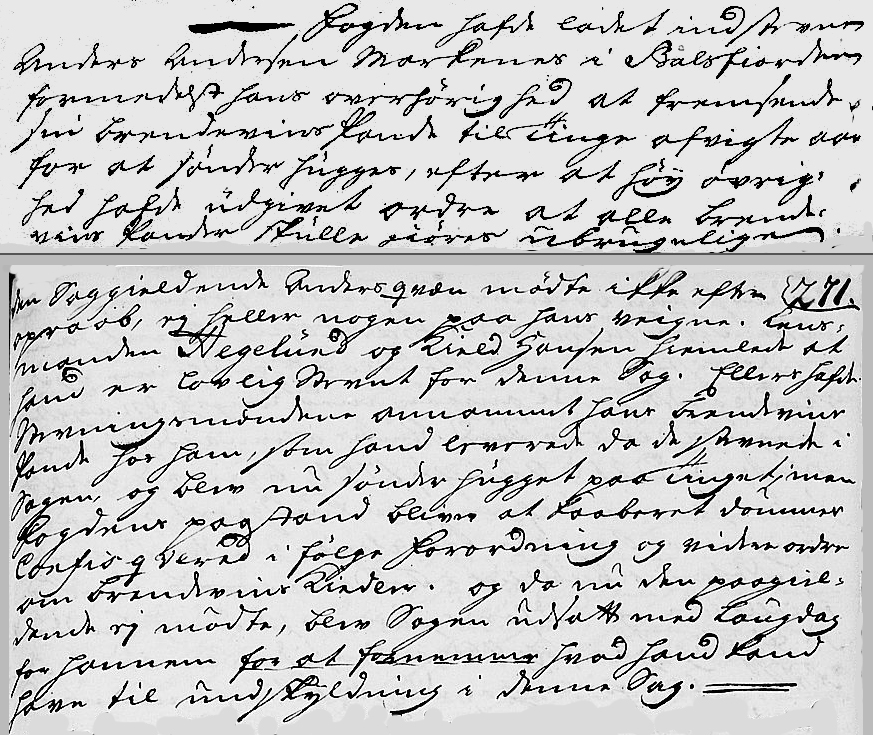 Fogden hafde ladet indstevne
Anders Andersen Markenes i Balsfiorden
formedelst hans overhørighed at fremsende
sin brendevins Pande til Tinge afvigte aar
for at sønder hügges, efter at høÿ øvrig:
hed hafde üdgivet ordre at alle brende:
vins Pander skülle giøres übrugelige
den Saggieldende Anders qvæn mødte ikke efter 271.
opraab, ej heller nogen paa hans veigne. Lens:
manden Hegelünd og Kield Hansen hiemlede at
hand er lovlig Stevnt for denne Sag. Ellers hafde
Stevningsmændene annammet hans brendevins
Pande hos ham, som hand leverede da de stevnede i
Sagen, og blev nu sønder hügget paa Tinget; men
Fogdens paastand bliver at Kaaberet dømmes
Confisqvered i følge Forordning og videre ordre
om brendevins Kiedler. og da nu den paagiel:
dende ej mødte, blev Sagen üdsatt med Laügdag
for hannem for at fornemme hvad hand kand
have til undskÿldning i denne Sag.